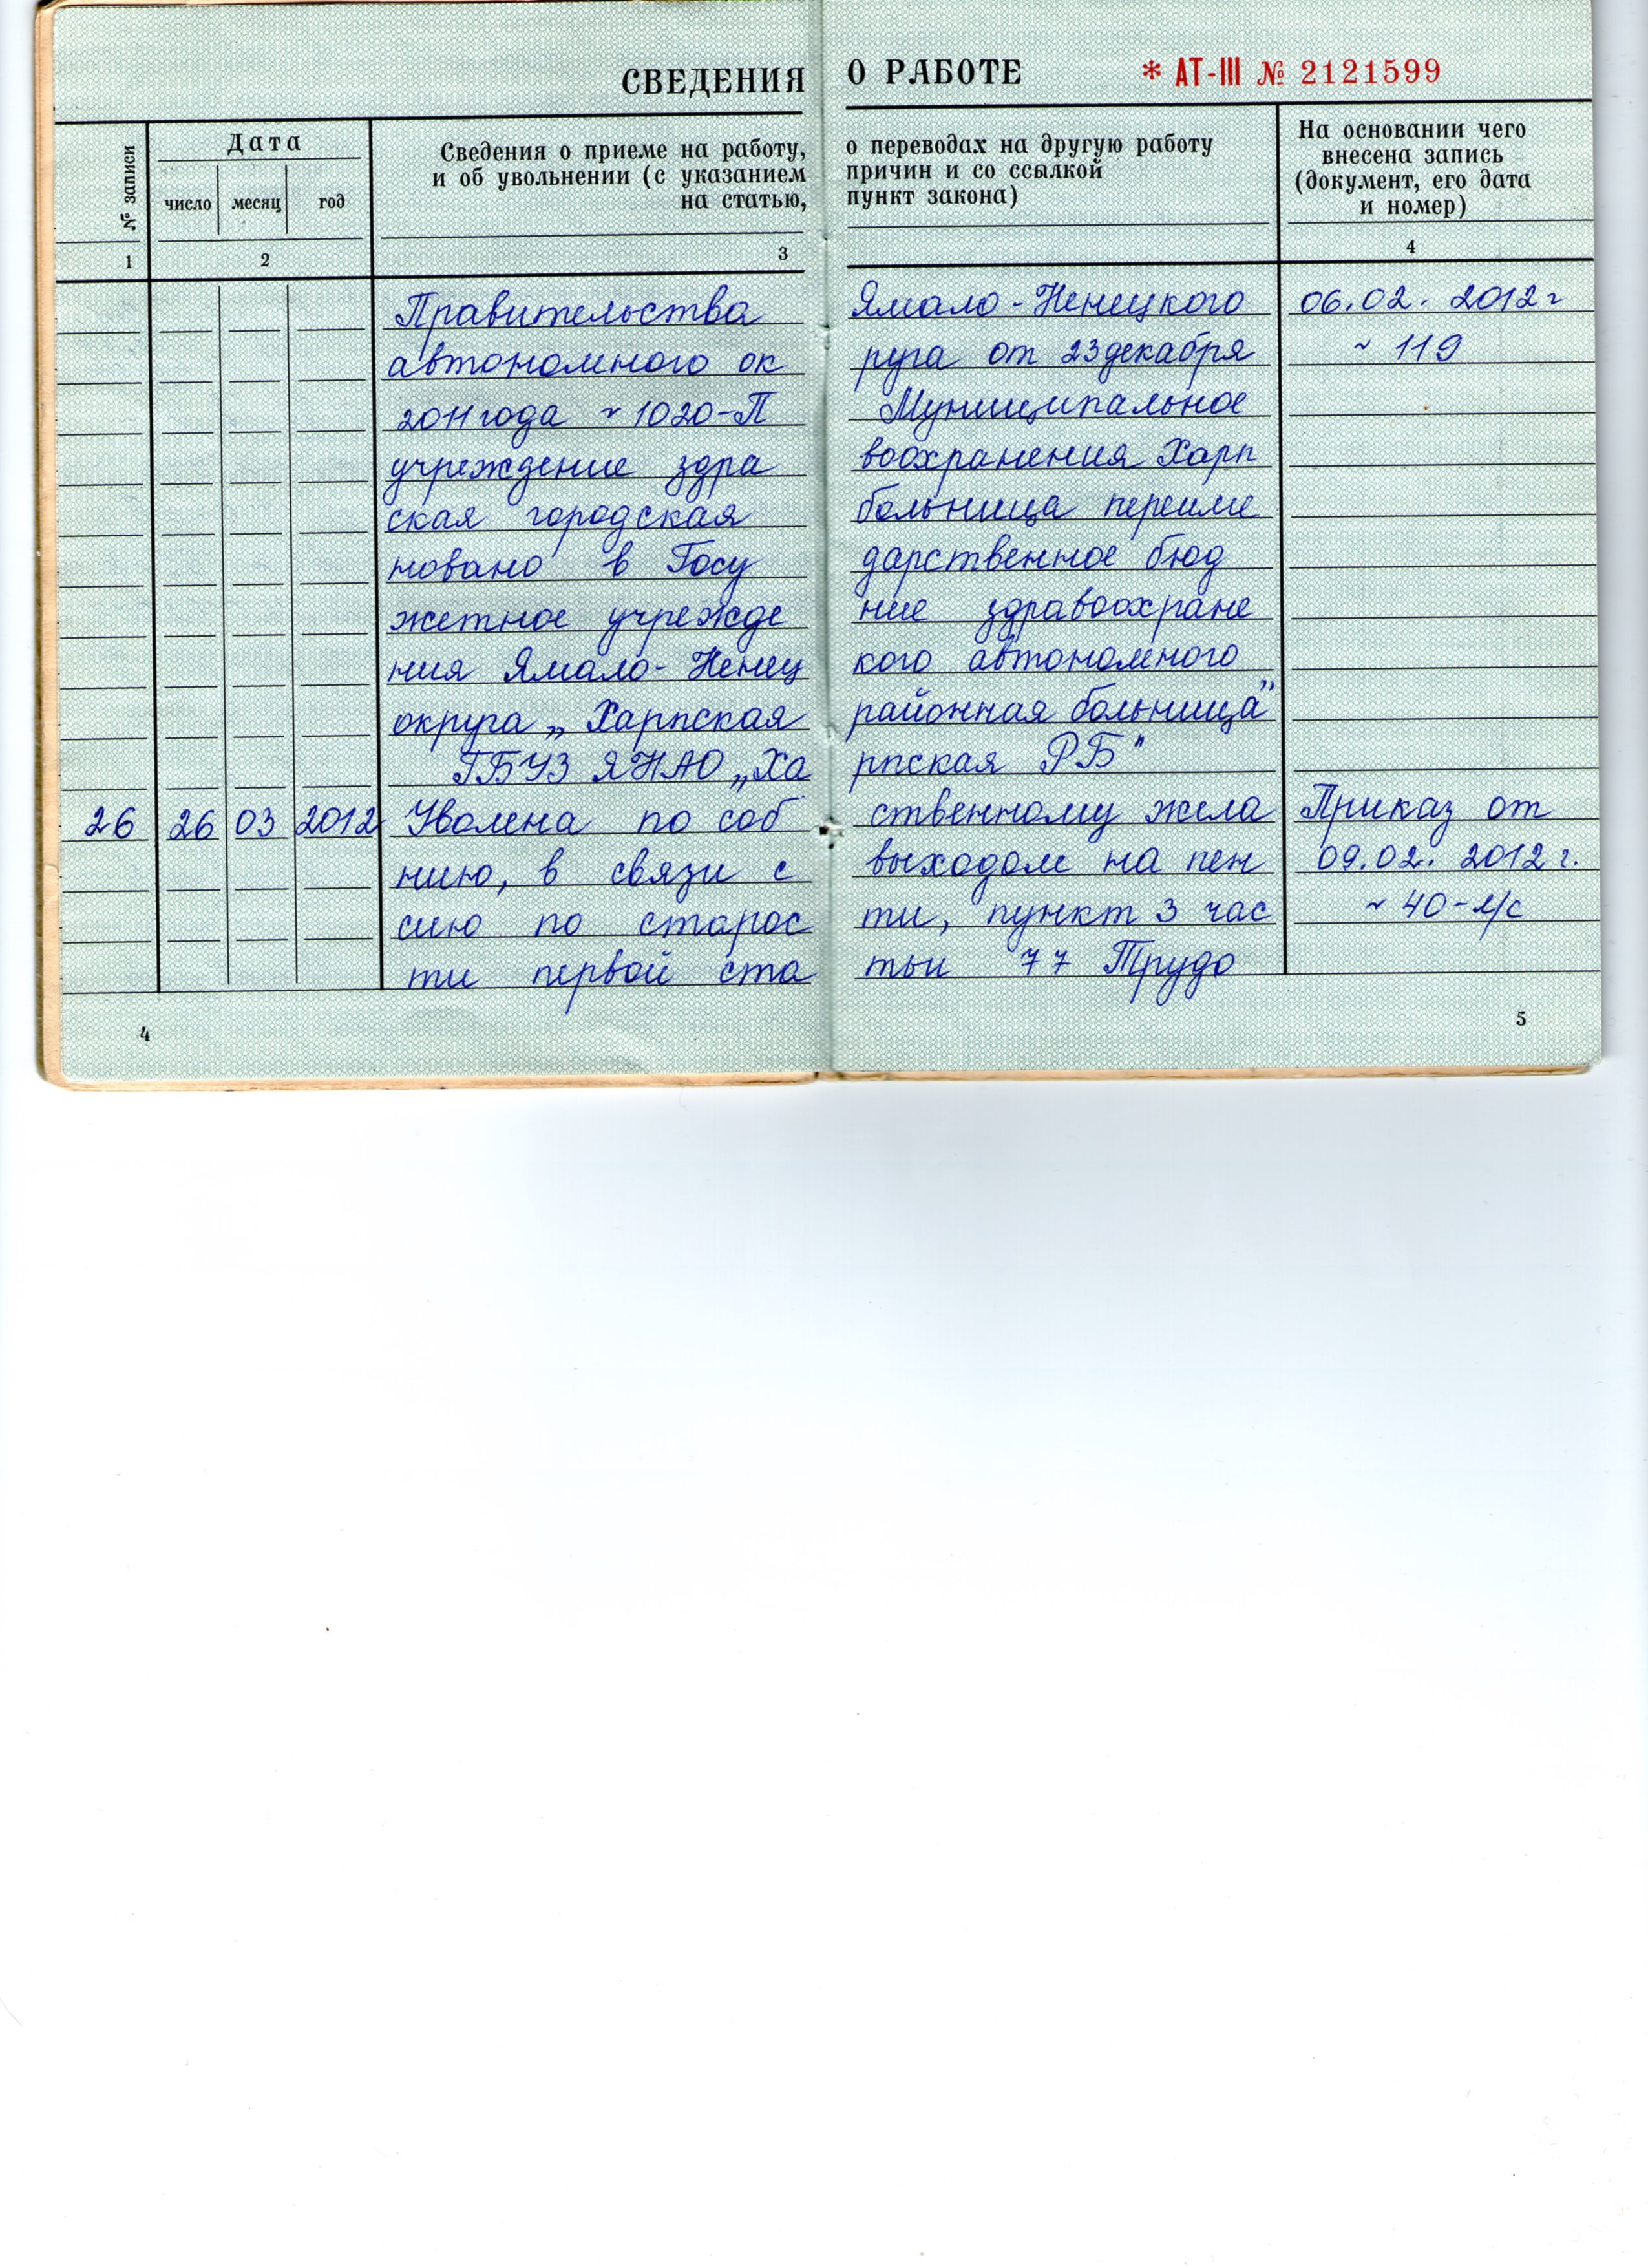 СВЕДЕНИЯ О РАБОТЕ * АТ-III № 2121599
№ записи
Дата
число месяц год
Сведения о приеме на работу, о переводах на другую работу
и об увольнении (с указанием причин и со ссылкой
на статью, пункт закона)
На основании чего
внесена запись
(документ, его дата
и номер)
1 2 3 4
Правительства Ямало-Ненецкого 06.02.2012г
автономного ок руга от 23 декабря ~ 119
2011 года ~ 1020-П Муниципальное
учреждение здра воохранения Харп
ская городская больница переиме
новано в Госу дарственное бюд
жетное учрежде ние здравоохране
ния Ямало-Ненец кого автономного
округа „Харпская районная больница”
ГБУЗ ЯНАО „Ха рпская РБ"
26 26 03 2012 Уволена по соб ственному жела Приказ от
нию, в связи с выходом на пен 09.02.2012г.
сию по старос ти, пункт 3 час ~ 40-л/с
ти первой ста тьи 77 Трудо
4 5